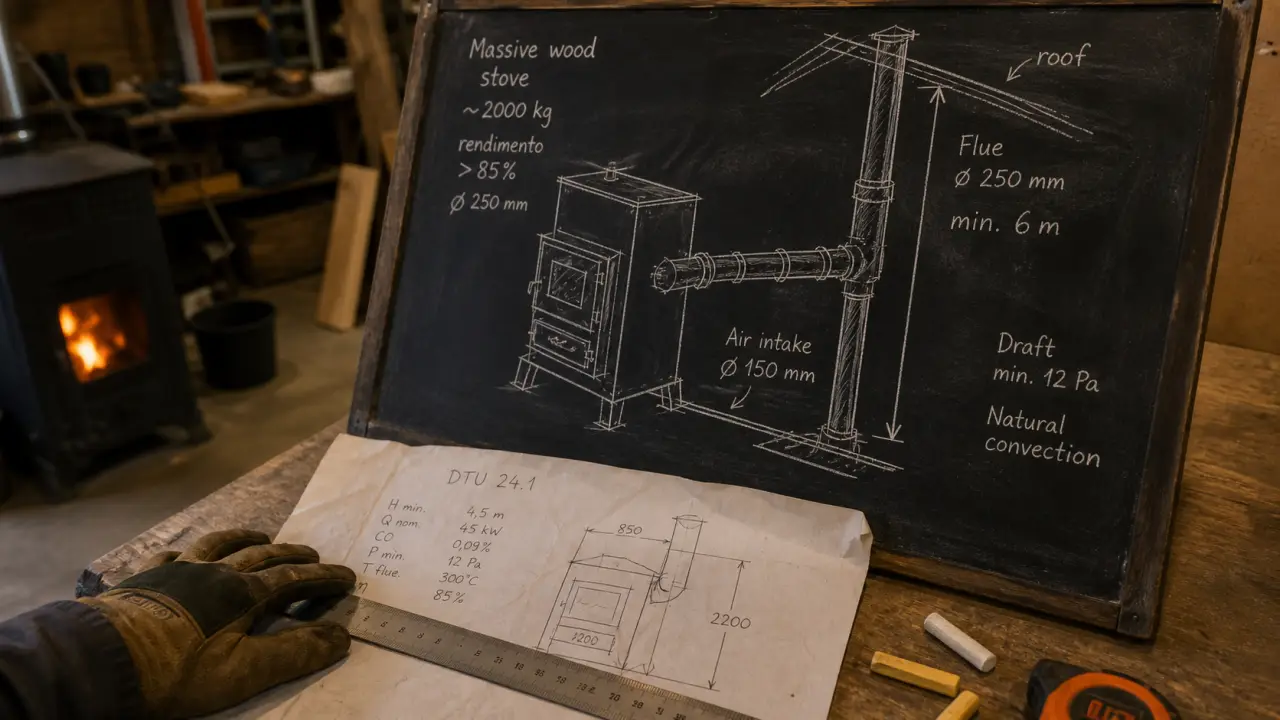 Massive wood
stove
~2000 kg
rendimento
> 85%
Ø 250 mm
roof
Flue
Ø 250 mm
min. 6 m
Air intake
Ø 150 mm
Draft
min. 12 Pa
Natural
convection
DTU 24.1
H min. 4,5 m
Q nom. 45 kW
CO 0,09%
P min. 12 Pa
T flue. 300°C
85%
850
2200